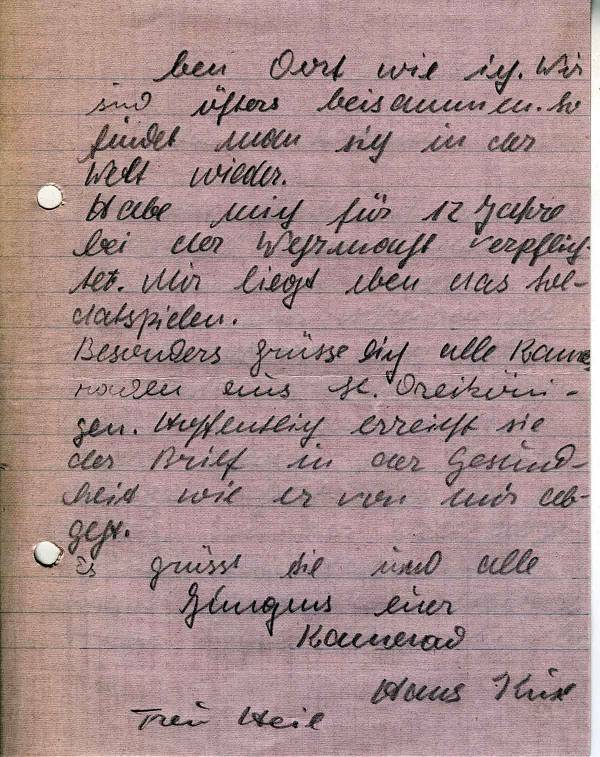 ben Oort wie ich. Wir
sind öfters beisammen. So
findet man sich in der
Welt wieder.
Habe mich für 12 Jahre
bei der Wehrmacht verpflich-
tet. Mir liegt eben das Sol-
datspielen.
Besonders grüsse dich alle Kame
raden aus St. Dreiköni-
gen. Hoffentlich erreicht sie
der Brief in der Gesund-
heit wie er von mir ab-
geht.
Es grüsst sie und alle
Jungens euer
Kamerad
Hans
Treu Heil